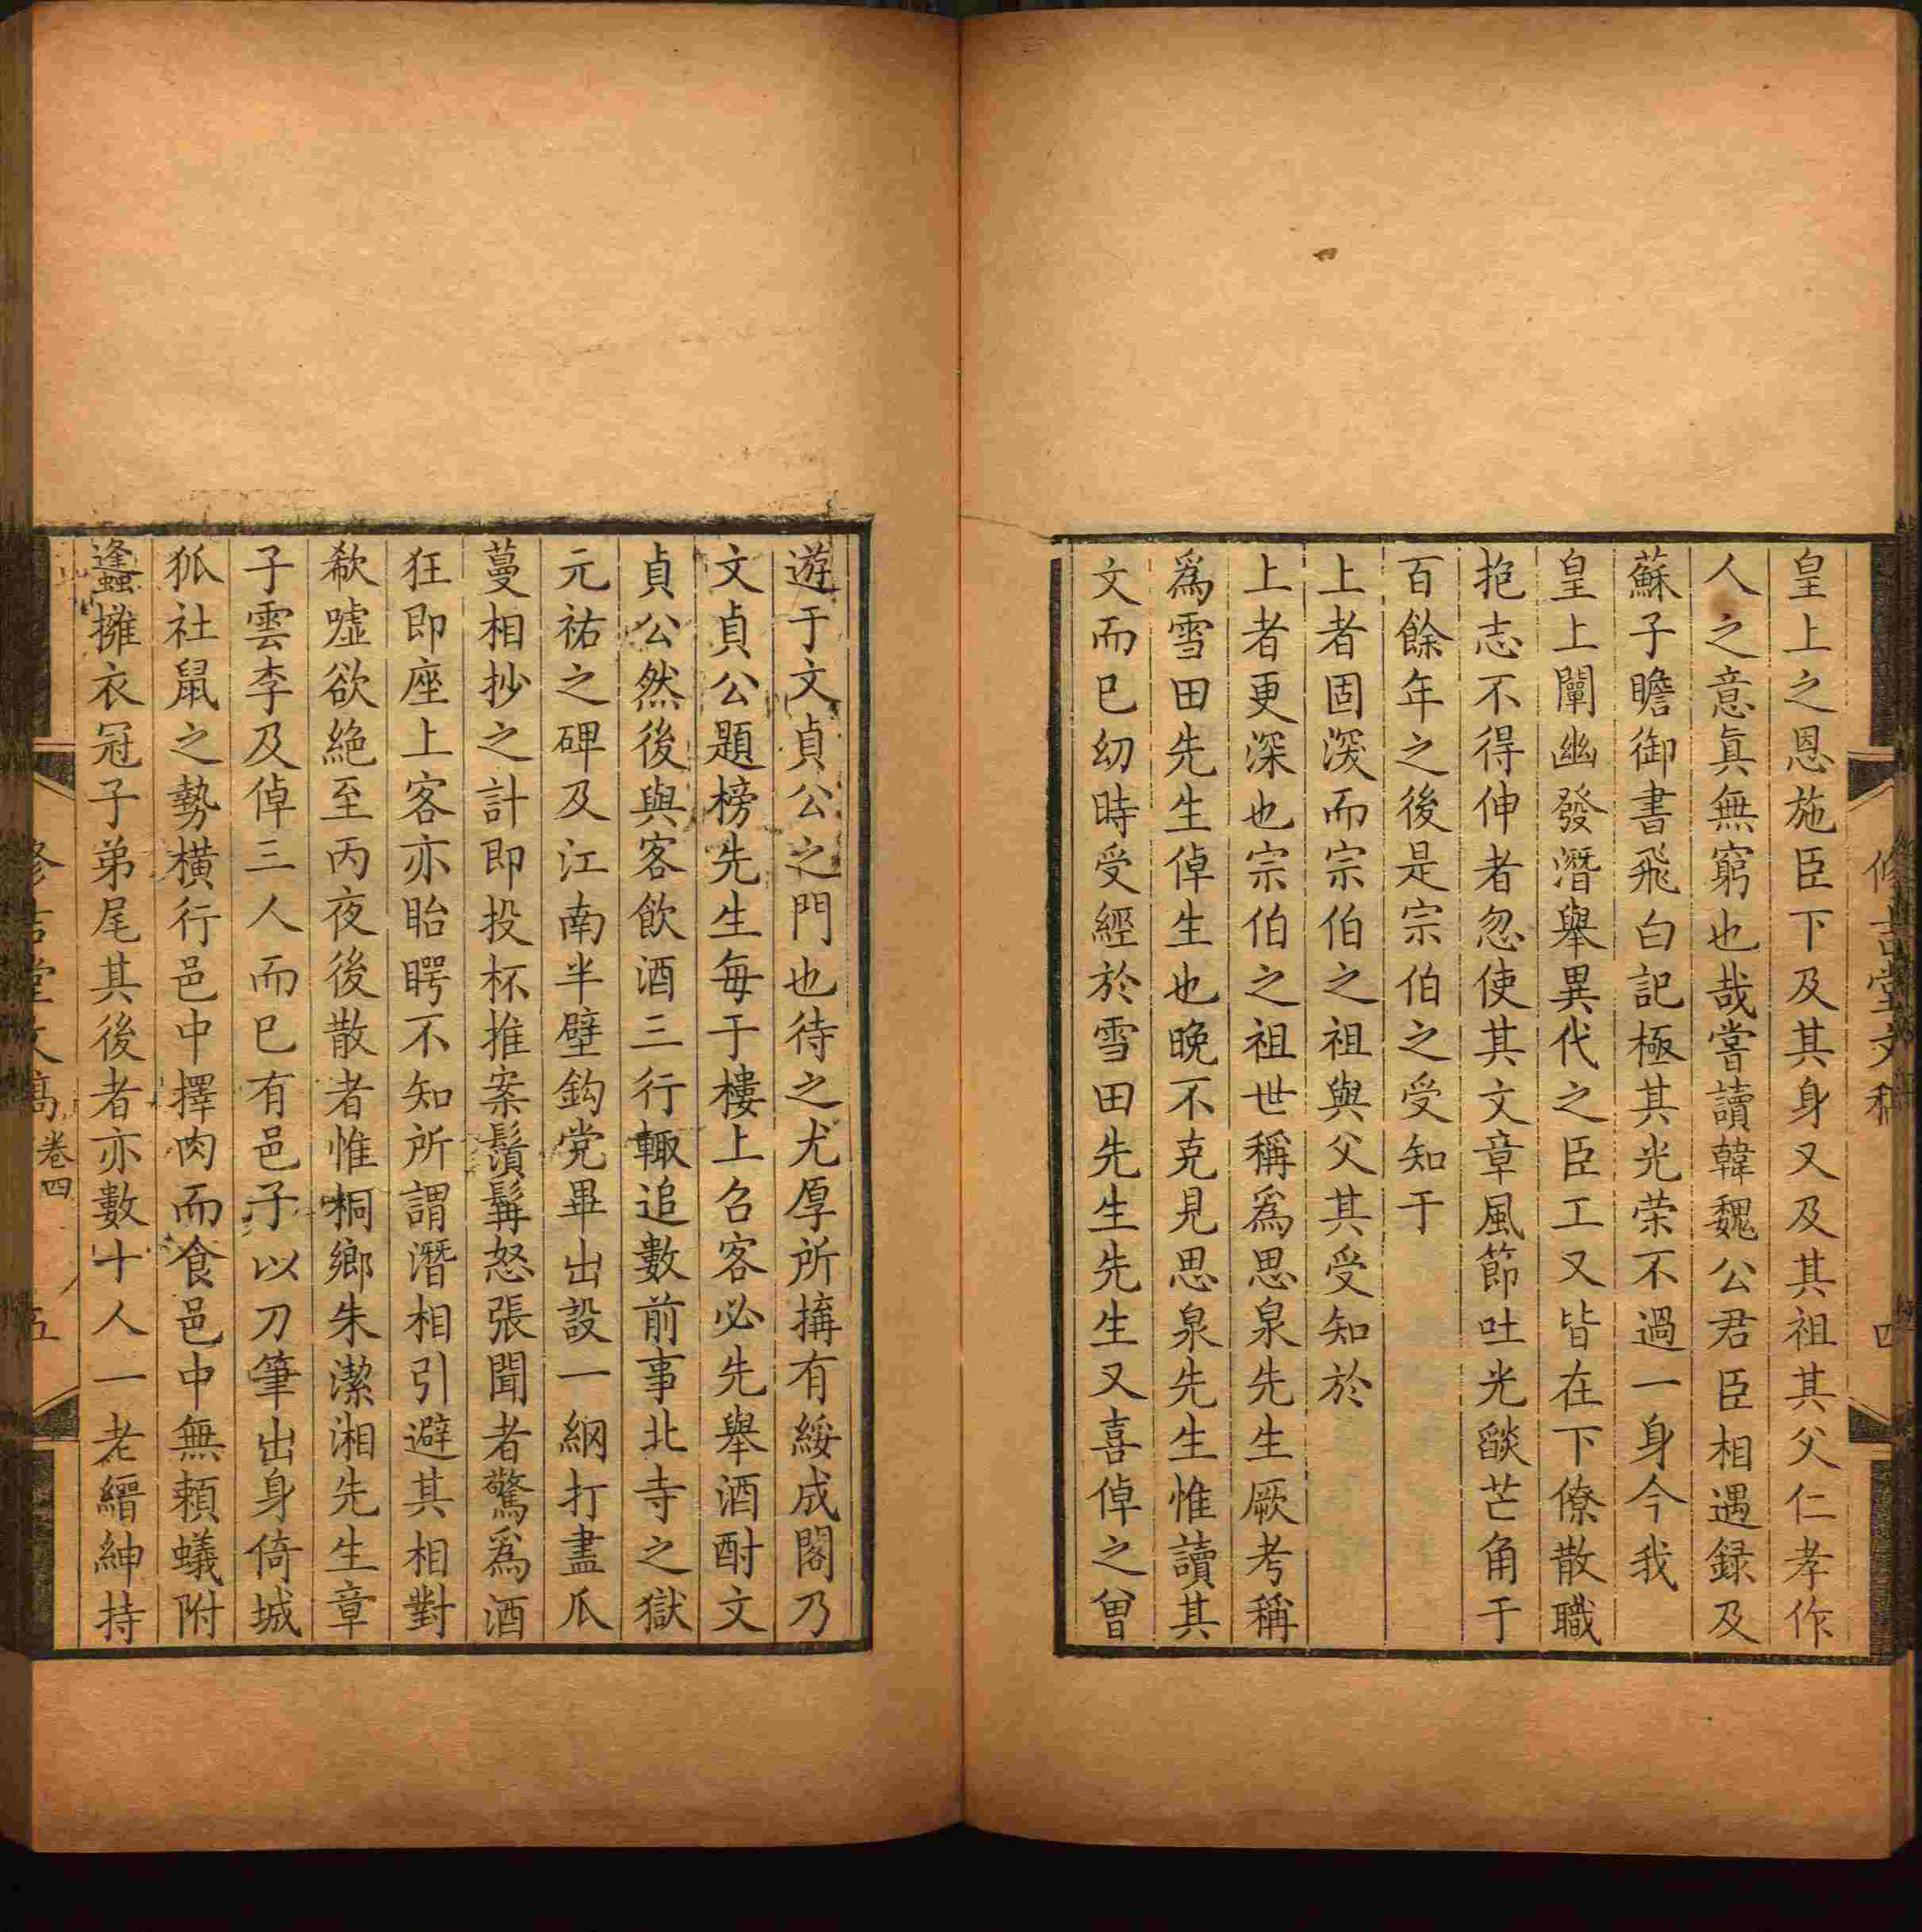 皇上之恩施臣下及其身又及其祖其父仁孝作
人之意眞無窮也哉嘗讀韓魏公君臣相遇録及
蘇子瞻御書飛白記極其光荣不過一身今我
皇上闡幽發潛舉異代之臣工又皆在下僚散職
抱志不得伸者忽使其文章風節吐光燄芒角于
百餘年之後是宗伯之受知于
上者固深而宗伯之祖與父其受知於
上者更深也宗伯之祖世稱爲思泉先生厥考稱
爲雪田先生倬生也晚不克見思泉先生惟讀其
文而已幼時受經於雪田先生先生又喜倬之曾
遊于文貞公之門也待之尤厚所搆有綏成閣乃
文貞公題榜先生每于樓上召客必先舉酒酎文
貞公然後與客飲酒三行輙追數前事北寺之獄
元祐之碑及江南半壁鈎党畢出設一網打盡瓜
蔓相抄之計即投杯推案鬚髯怒張聞者驚爲酒
狂即座上客亦眙瞤不知所謂潛相引避其相對
欷噓欲絶至丙夜後散者惟桐鄉朱潔湘先生章
子雲李及倬三人而已有邑子以刀筆出身倚城
狐社鼠之勢横行邑中擇肉而食邑中無頼蟻附
蠭擁衣冠子弟尾其後者亦數十人一老縉紳持
修吉堂文稿
四
卷四
五